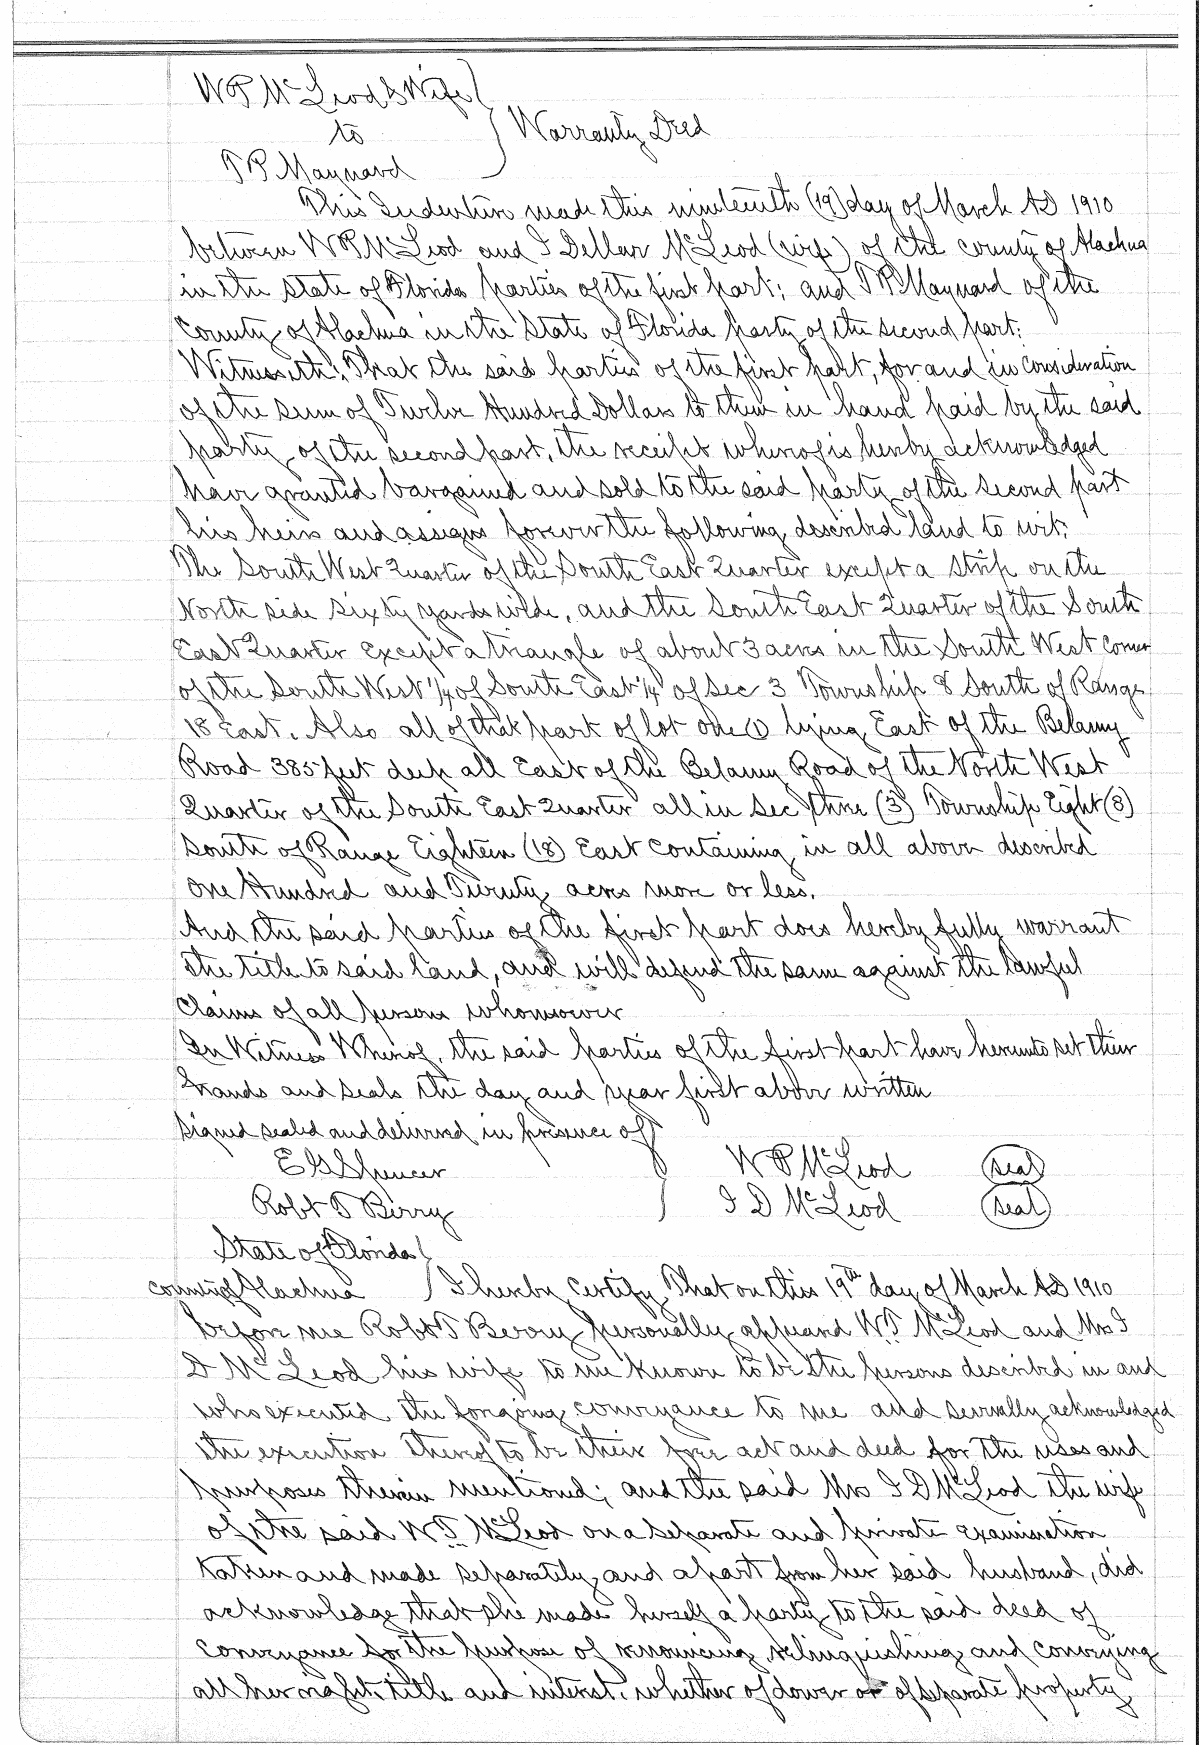 W P McLeod & Wife
to
Warranty Deed
T P Maynard
This Indenture made this nineteenth (19) day of March AD 1910
between W P McLeod and I Dellar McLeod (wife) of the county of Alachua
in the State of Florida parties of the first part; and T P Maynard of the
County of Alachua in the State of Florida party of the second part;
Witnesseth; That the said parties of the first part, for and in consideration
of the sum of Twelve Hundred Dollars to them in hand paid by the said
party of the second part, the receipt whereof is hereby acknowledged
have granted bargained and sold to the said party of the second part
his heirs and assigns forever the following described land to wit;
The South West Quarter of the South East Quarter except a strip on the
North side sixty yards wide, and the South East Quarter of the South
East Quarter Except a triangle of about 3 acres in the South West Corner
of the South West 1/4 of South East 1/4 of Sec 3 Township 8 South of Range
18 East. Also all of that part of lot one (1) lying East of the Belamy
Road 385 feet deep all East of the Belamy Road of the North West
Quarter of the South East Quarter all in Sec three (3) Township Eight (8)
South of Range Eighteen (18) East containing in all above described
one Hundred and Twenty acres more or less.
And the said parties of the first part does hereby fully warrant
the title to said land, and will defend the same against the lawful
claims of all persons whomsoever
In Witness Whereof, the said parties of the first part have hereunto set their
hands and seals the day and year first above written
Signed sealed and delivered in presence of
E G Spencer W P McLeod (seal)
Robt T Berry I D McLeod (seal)
State of Florida
county of Alachua I hereby certify, That on this 19th day of March AD 1910
before me Robt T Berry personally appeard W.P. McLeod and Mrs I
D McLeod his wife to me known to be the persons described in and
who executed the forgoing conveyance to me and severally acknowledged
the execution thereof to be their free act and deed for the uses and
purposes therein mentioned; and the said Mrs I D McLeod the wife
of the said W.P. McLeod on a separate and private examination
taken and made separately and apart from her said husband, did
acknowledge that she made herself a party to the said deed of
conveyance for the purpose of renouncing, relinquishing and conveying
all her right, title and interest, whether of dower or of separate property